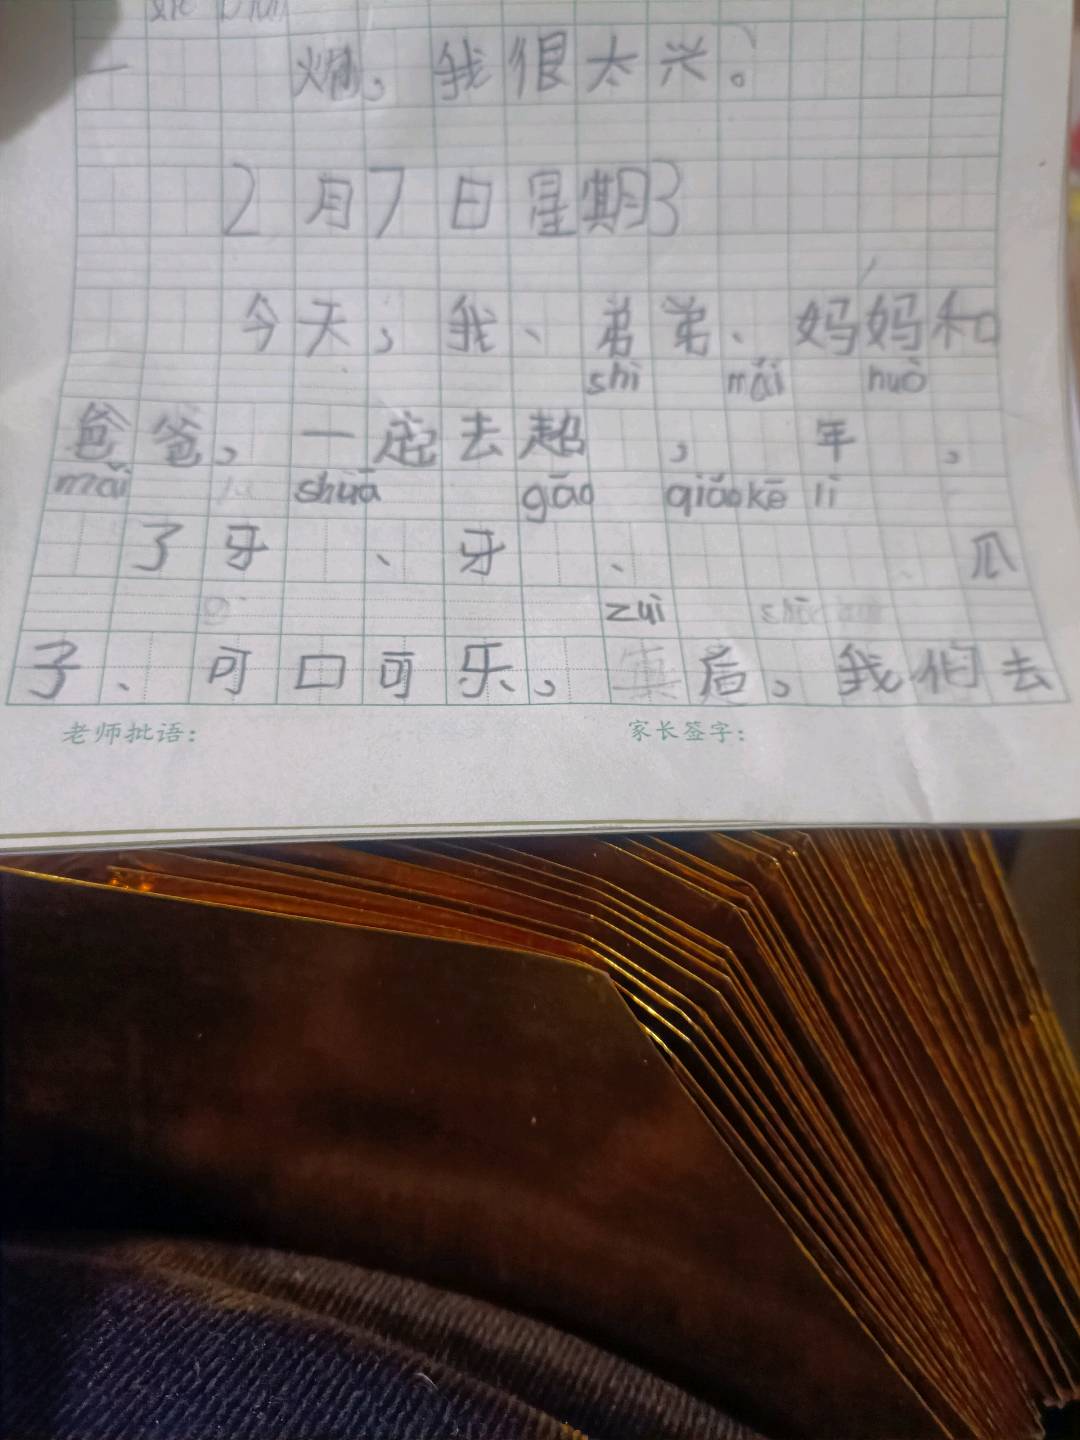 一 ，我很太兴。
2月7日星期3
今天，我、弟弟、妈妈和
shì mǎi huò
爸爸，一起去超 ， 年 ，
mǎi shuā gāo qiǎo kē lì
了牙 、牙 、 瓜
zuì
子、可口可乐， 后，我们去
老师批语： 家长签字：